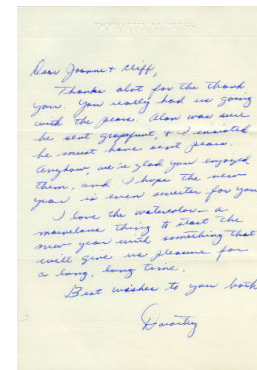 Dear Joanne & Cliff,
Thanks alot for the thank
you. You really had us going
with the pears. Alan was sure
he sent grapefruit, & I insisted
he must have sent pears.
Anyhow, we're glad you enjoyed
them, and I hope the new
year is even sweeter for you
I love the watercolor – a
marvelous thing to start the
new year with something that
will give us pleasure for
a long, long time.
Best wishes to you both
Dorothy